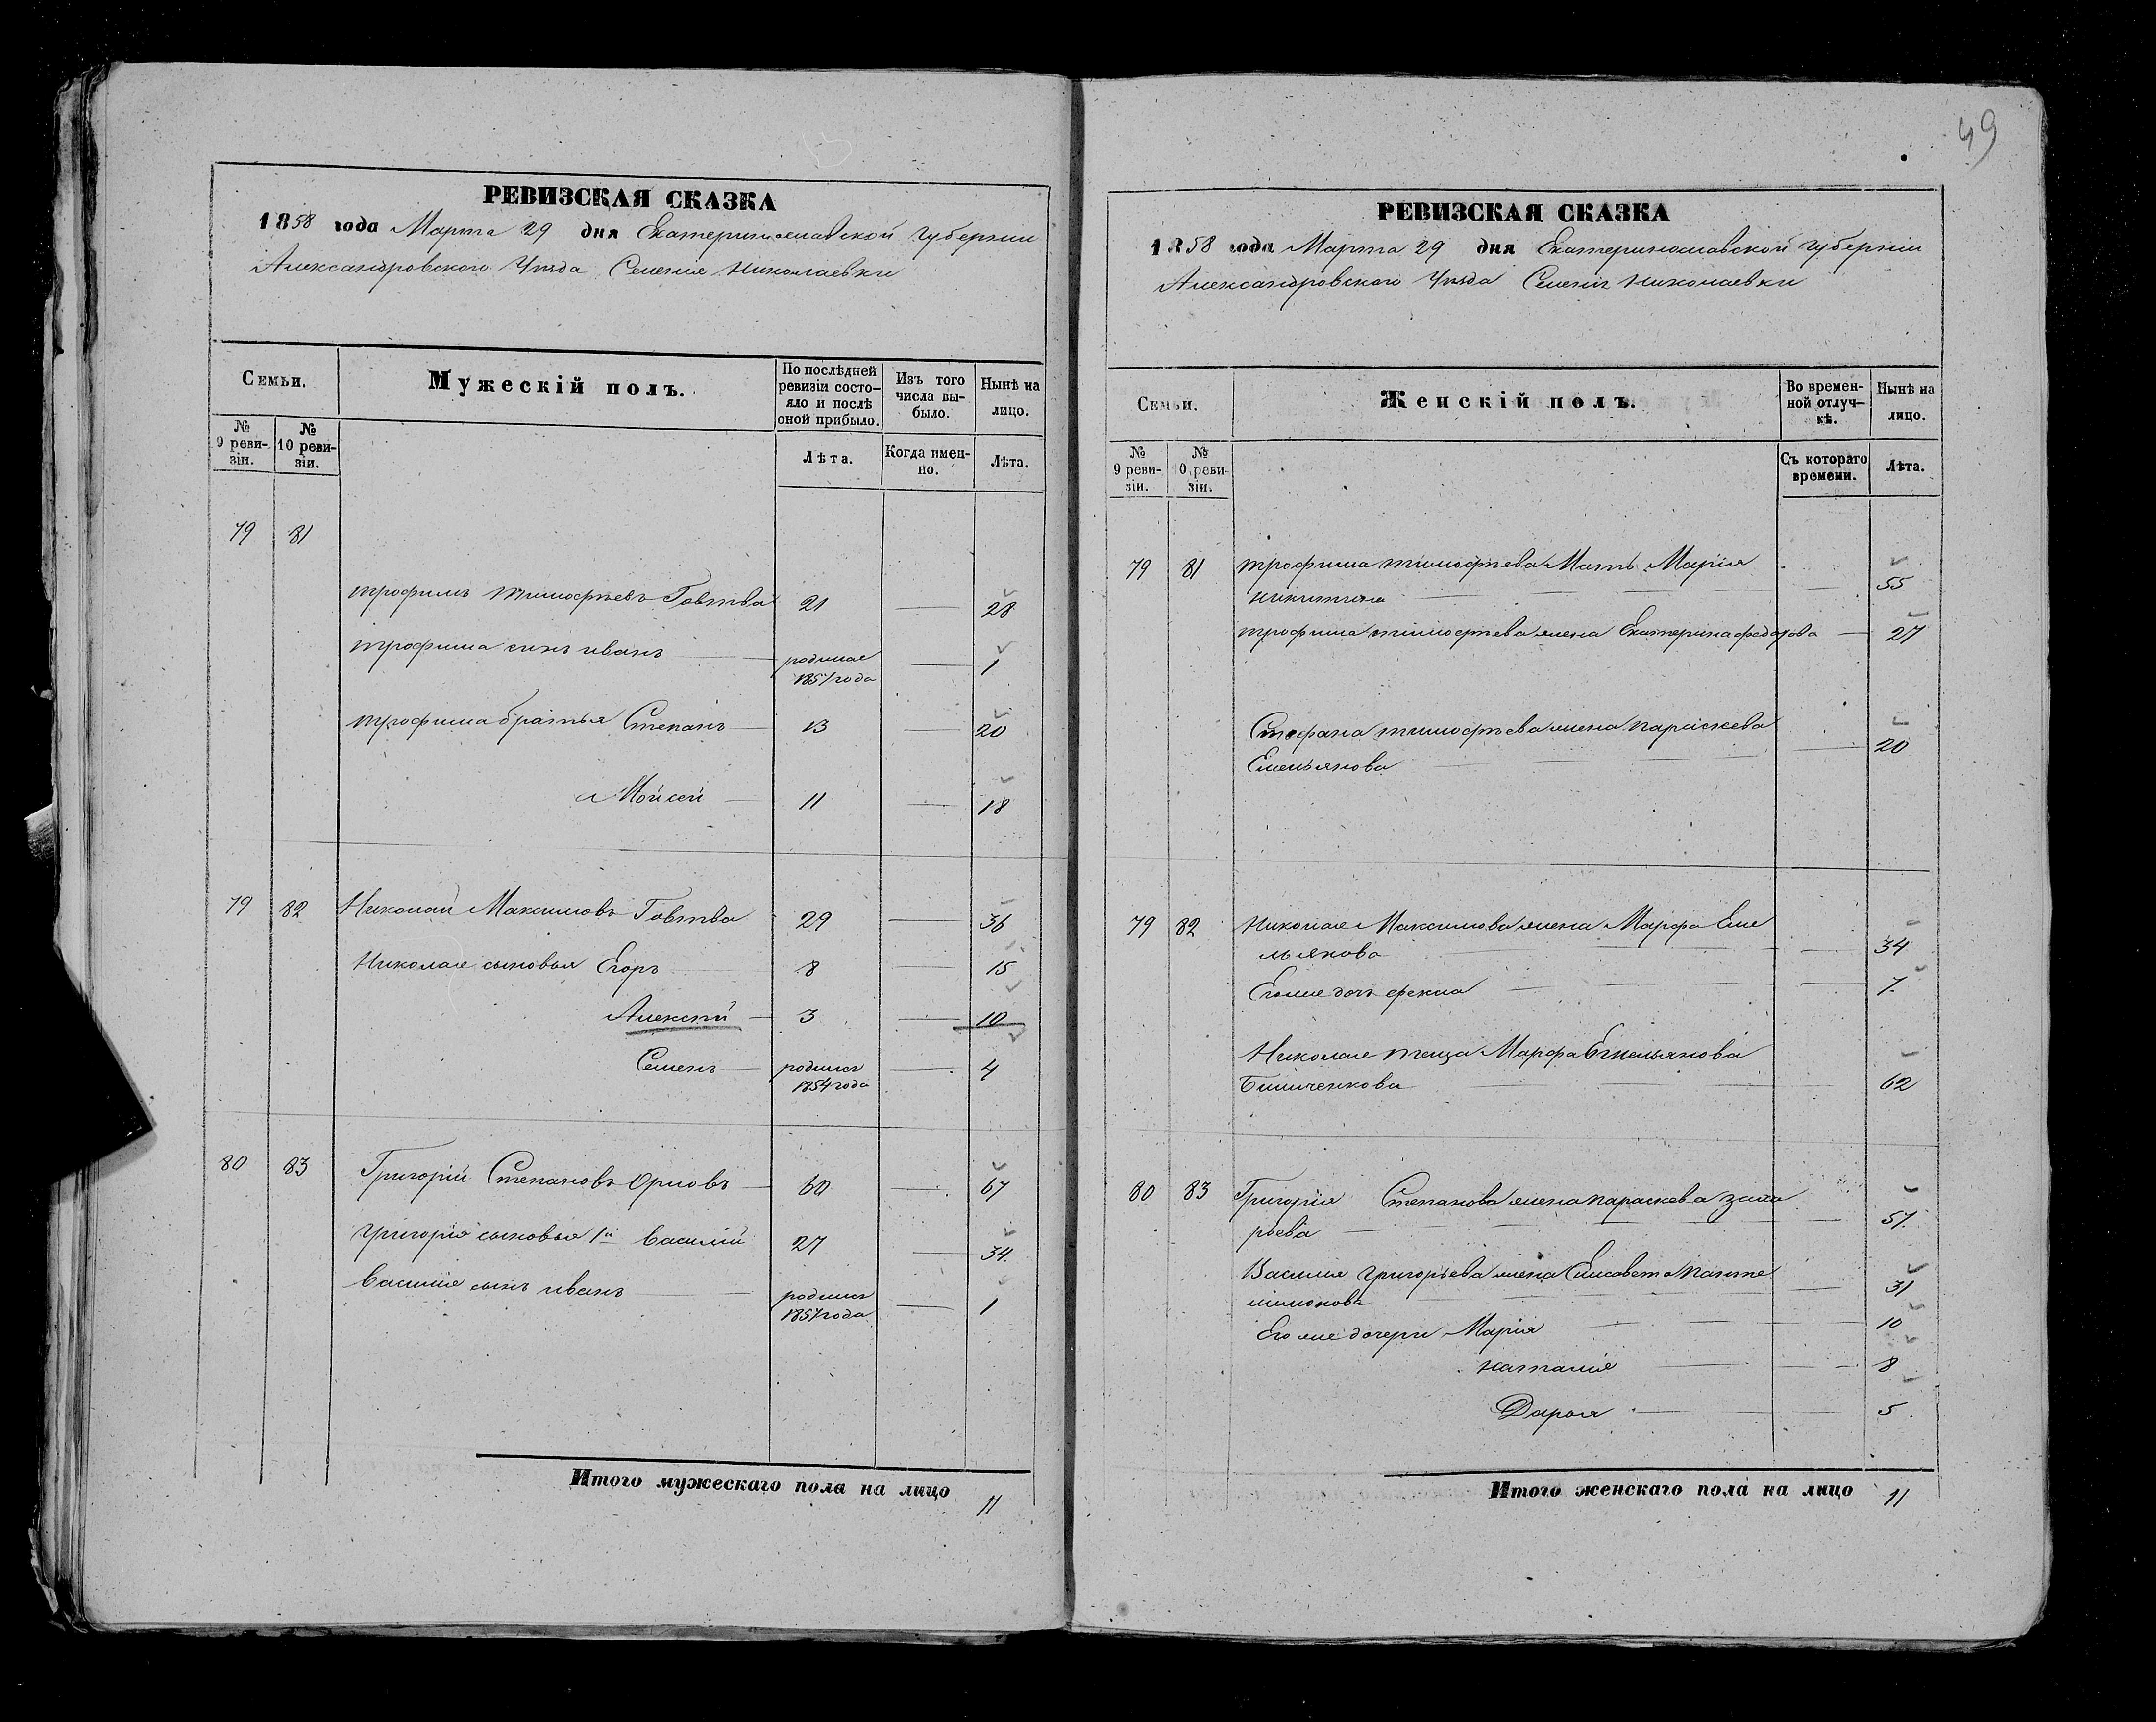 49
РЕВИЗСКАЯ СКАЗКА
1858 года Марта 29 дня Екатеринославской Губернии
Александровского Уезда Селения Николаевки
Семьи.
Мужескій полъ.
По послѣдней ревизіи состо-яло и послѣ оной прибыло.
Изъ того числа вы-было.
Нынѣ на лицо.
№ 9 реви-зіи.
№ 10 реви-зіи.
Лѣта.
Когда имен-но.
Лѣта.
79 81
трофимъ тимофѣевъ Говтва 21 28
трофима сынъ иванъ родился 1857 года 1
трофима братья Степанъ 13 20
Мойсей 11 18
79 82 Николай Максимовъ Говтва 29 36
Николая сыновья Егоръ 8 15
Алексѣй 3 10
Семенъ родился 1854 года 4
80 83 Григорій Степановъ Орловъ 60 67
григорія сыновья 1й Василій 27 34
Василія сынъ иванъ родился 1857 года 1
Итого мужескаго пола на лицо 11
РЕВИЗСКАЯ СКАЗКА
1858 года Марта 29 дня Екатеринославской Губерніи
Александровского Уѣзда Селенія Николаевки
Семьи.
Женскій полъ.
Во времен-ной отлуч-кѣ.
Нынѣ на лицо.
№ 9 реви-зіи.
№ 0 реви-зіи.
Съ котораго времени.
Лѣта.
79 81 трофима тимофѣева Мать Марія
никитина 55
трофима тимофѣева жена Екатерина федорова 27
Стефана тимофѣева жена параскева
Емельянова 20
79 82 николая Максимова жена Марфа Еме
льянова 34
Егоже дочь фекла 7
Николая теща Марфа Емельянова
62
80 83 Григорія Степанова жена параскева заха
рьева 57
Василія григорьева жена Елисавета Панте
лимонова 31
Его же дочери Марія 10
наталія 8
Дарья 5
Итого женскаго пола на лицо 11